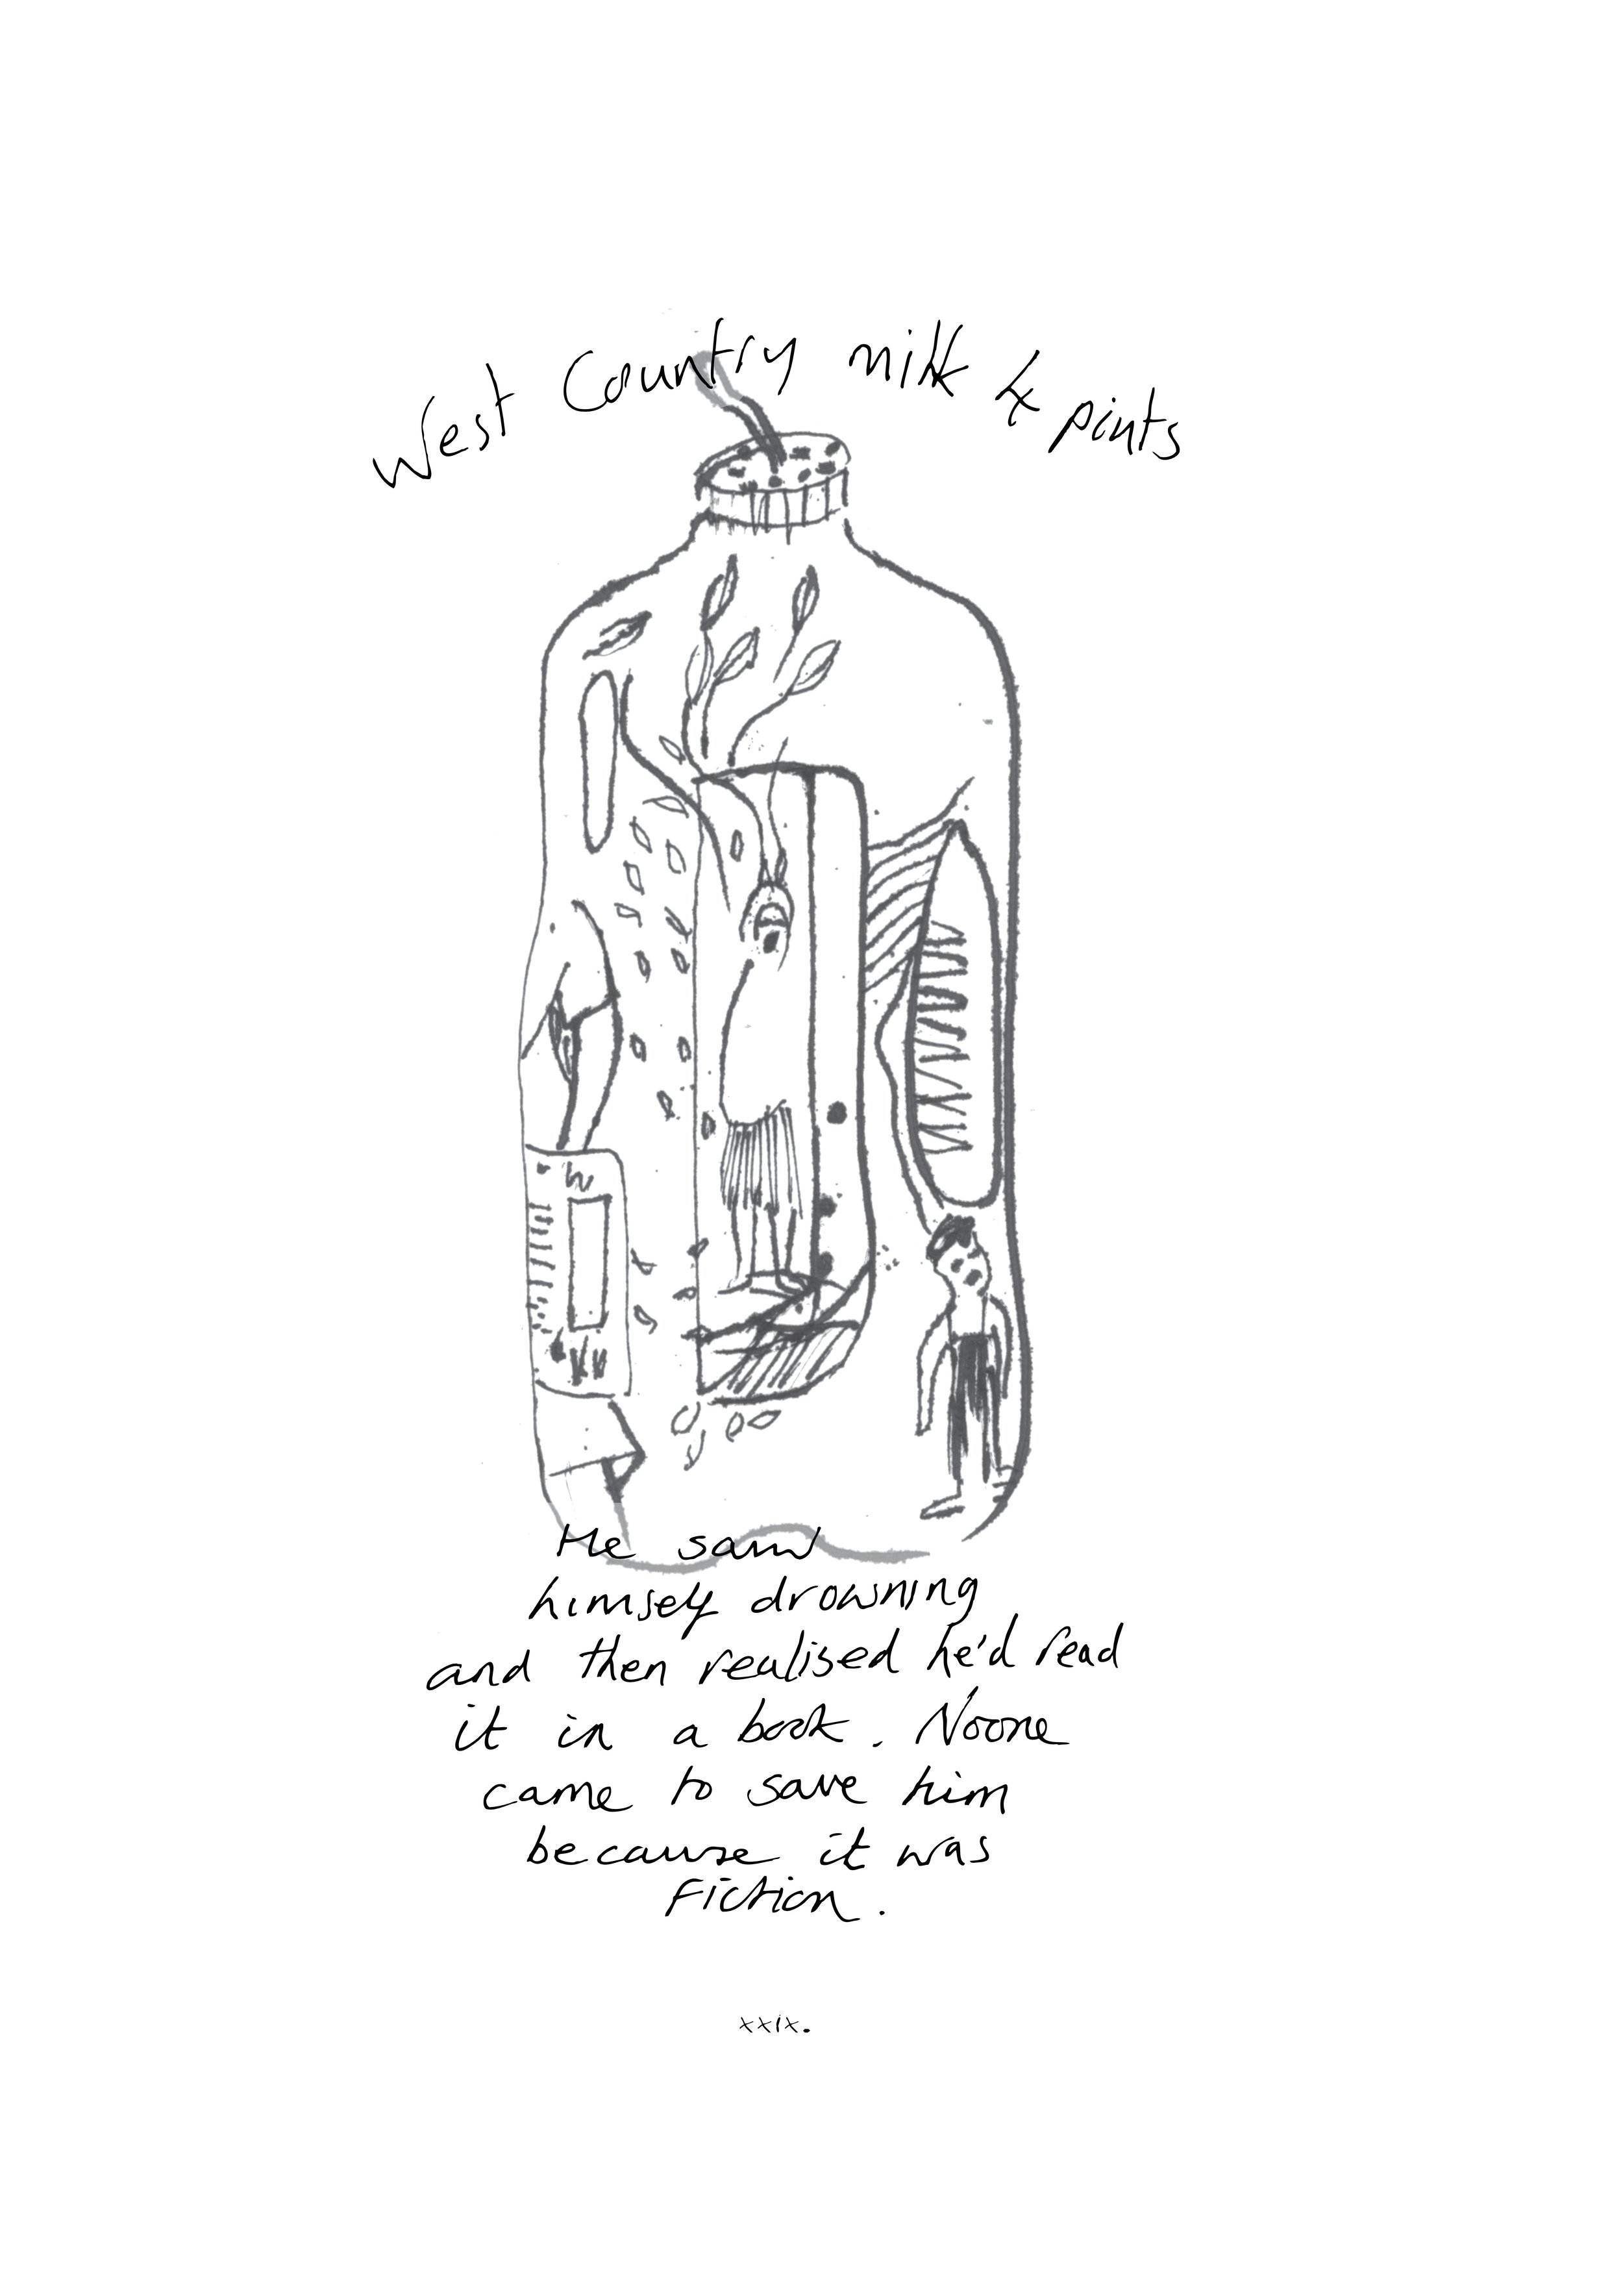 West Country milk 4 pints
W
He saw
himself drowning
and then realised he'd read
it in a book. Noone
came to save him
because it was
fiction.
xxix.